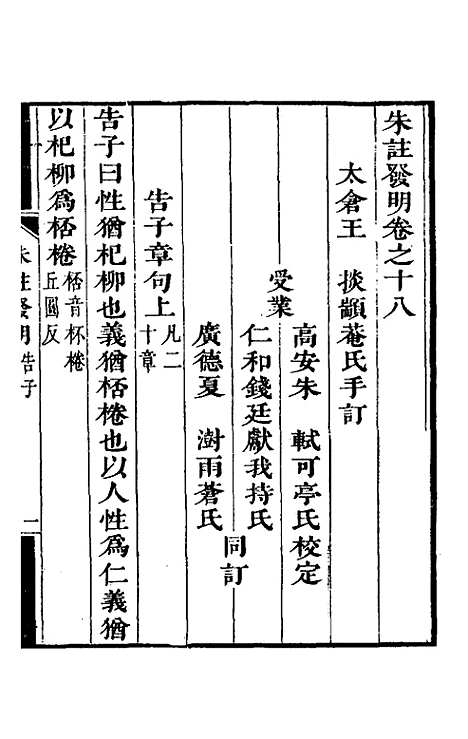 朱註發明卷之十八
太倉王　掞顓菴氏手訂
受業
高安朱　軾可亭氏校定
仁和錢廷獻我持氏
廣德夏　澍雨蒼氏
同訂
告子章句上
凡二十章
告子曰性猶杞柳也義猶桮棬也以人性爲仁義猶
以杞柳爲桮棬
桮音杯棬丘圓反
朱註發明
告子
一